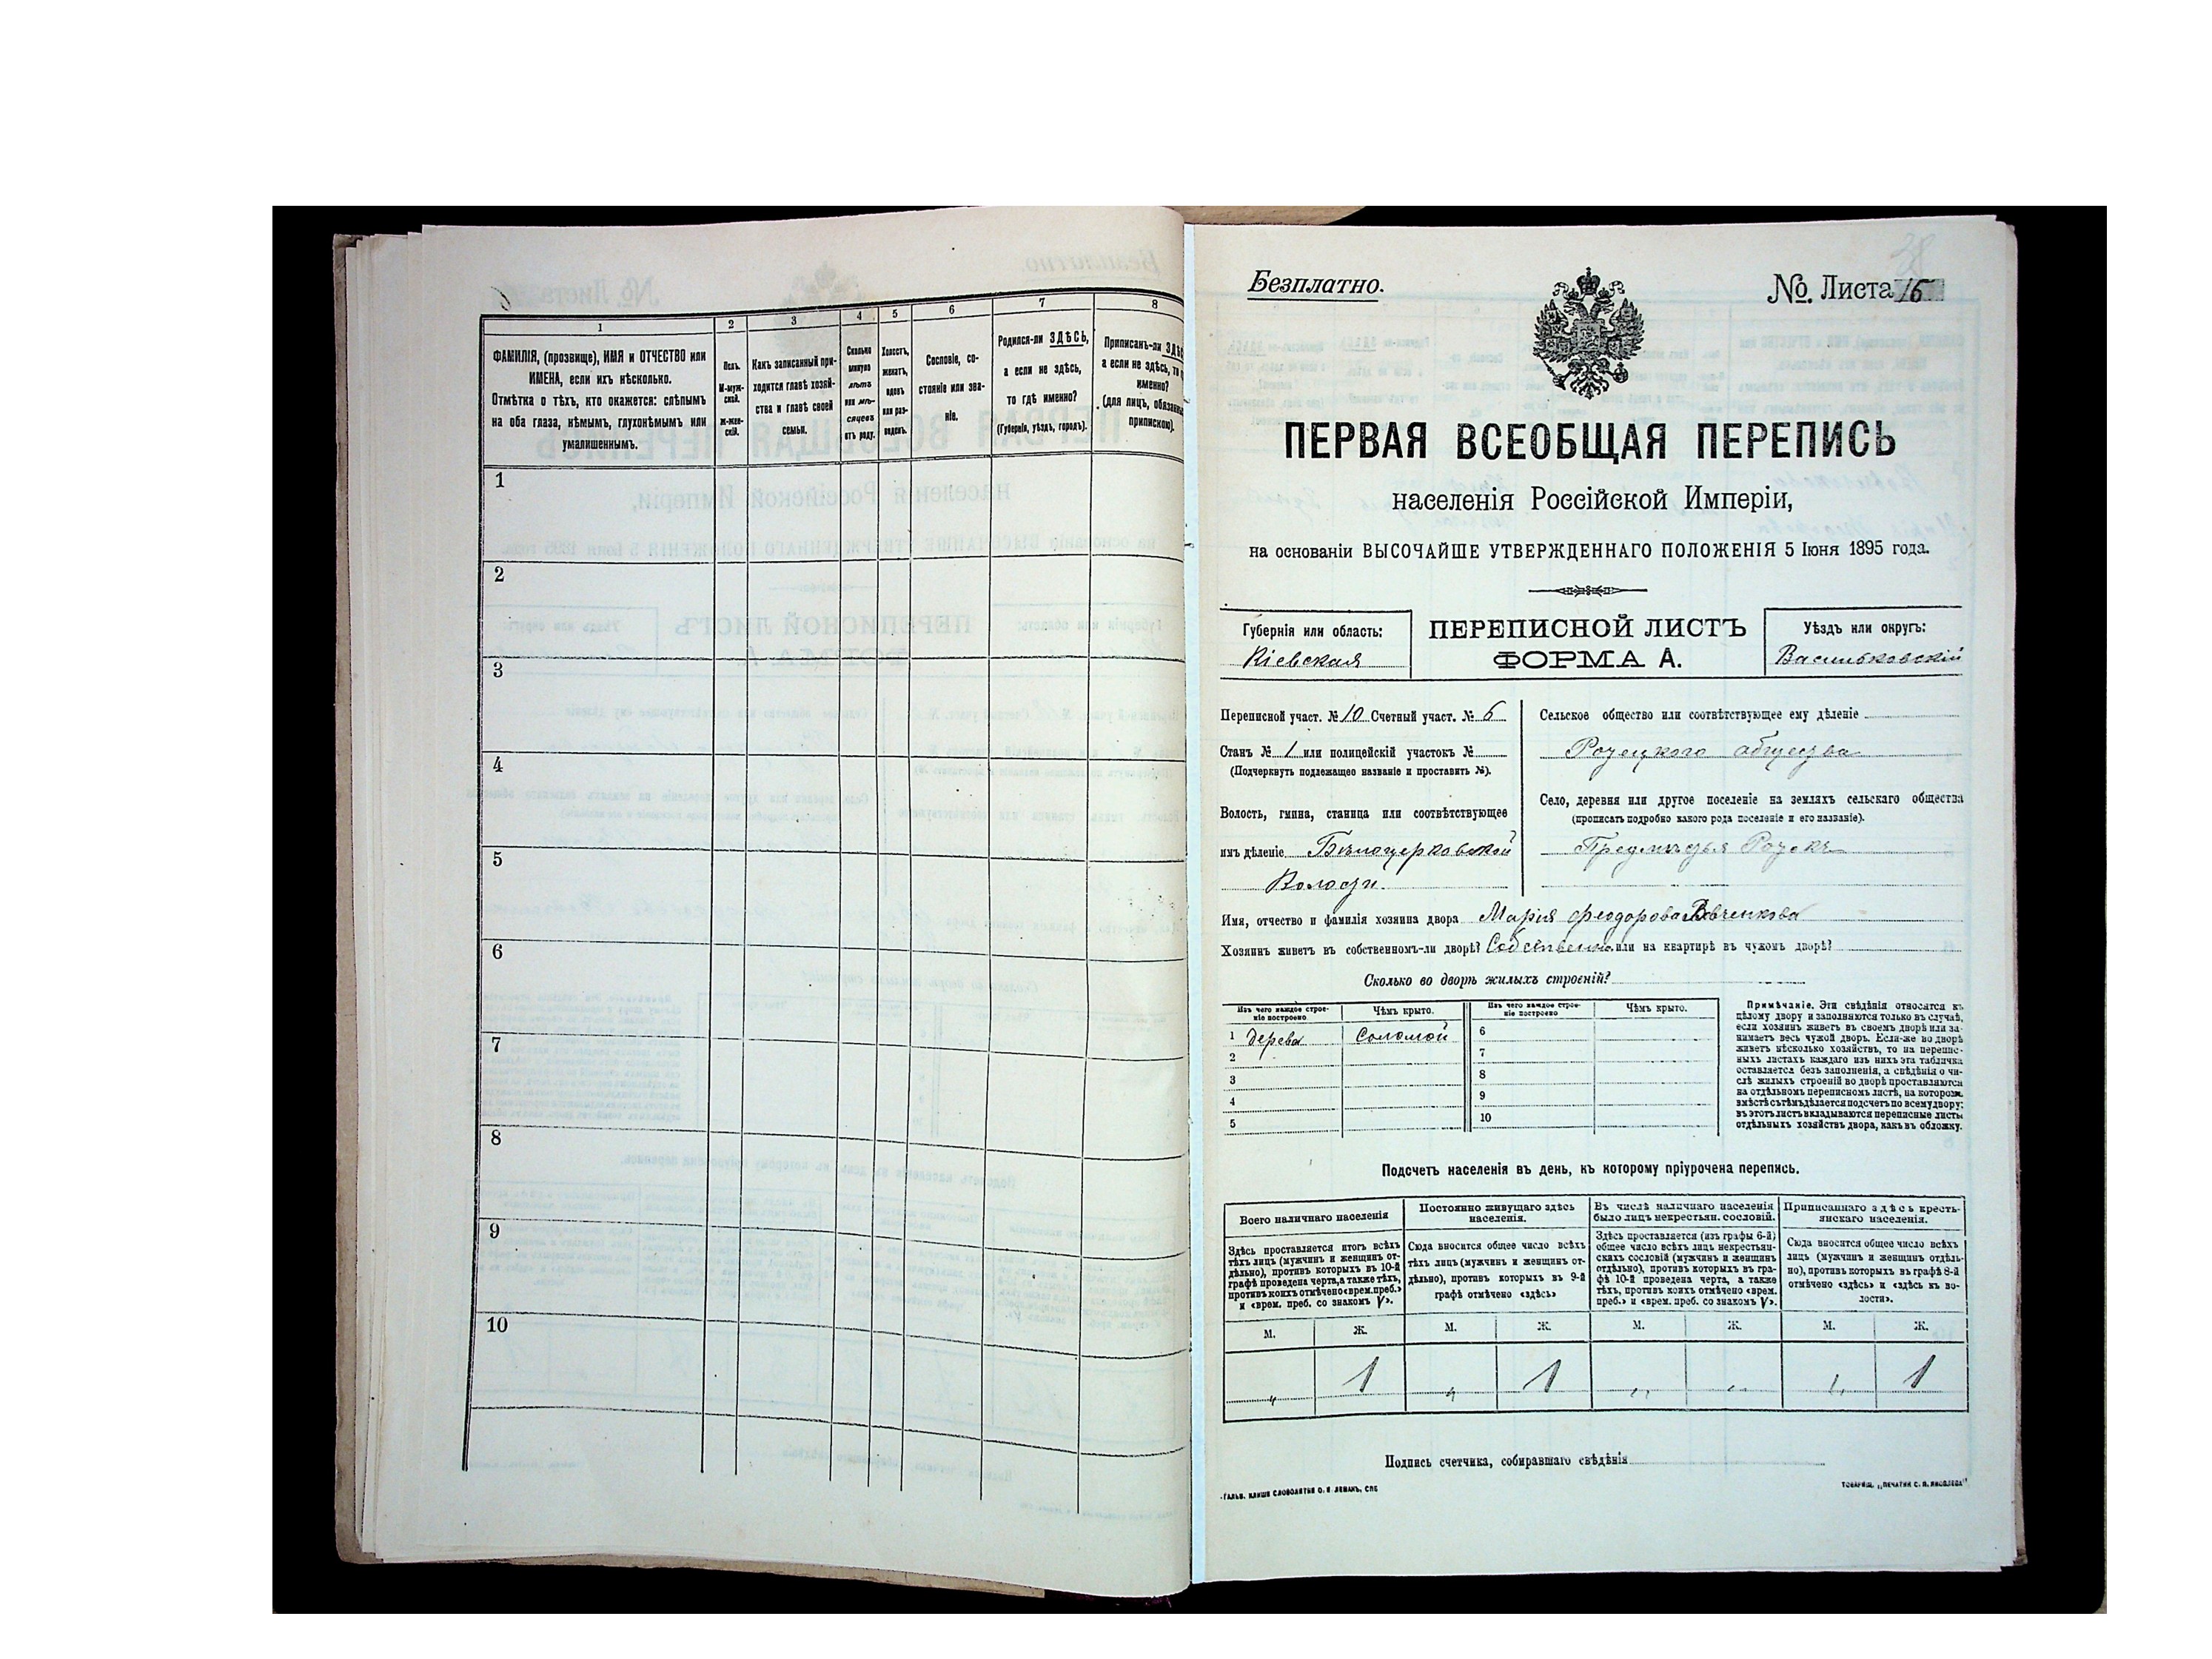 1
2
3
4
5
6
7
8
ФАМИЛІЯ, (прозвище), ИМЯ и ОТЧЕСТВО или
ИМЕНА, если ихъ нѣсколько.
Отмѣтка о тѣхъ, кто окажется: слѣпымъ
на оба глаза, нѣмымъ, глухонѣмымъ или
умалишеннымъ.
Полъ.
М-муж-
ской.
Ж-жен-
скій.
Какъ записанный при-
ходится главѣ хозяй-
ства и главѣ своей
семьи.
Сколько
минуло
лѣтъ
или мѣ-
сяцевъ
отъ роду.
Холостъ,
женатъ,
вдовъ
или раз-
веденъ.
Сословіе, со-
стояніе или зва-
ніе.
Родился-ли ЗДѢСЬ,
а если не здѣсь,
то гдѣ именно?
(Губернія, уѣздъ, городъ).
Приписанъ-ли
а если не здѣсь, то
именно?
(для лицъ,
припискою).
1
2
3
4
5
6
7
8
9
10
Безплатно.
№ Листа 16
ПЕРВАЯ ВСЕОБЩАЯ ПЕРЕПИСЬ
населенія Россійской Имперіи,
на основаніи ВЫСОЧАЙШЕ УТВЕРЖДЕННАГО ПОЛОЖЕНІЯ 5 Іюня 1895 года.
Губернія или область:
Кіевская
ПЕРЕПИСНОЙ ЛИСТЪ
ФОРМА А.
Уѣздъ или округъ:
Васильковскій
Переписной участ. № 10 Счетный участ. № 6
Станъ № 1 или полицейскій участокъ №
(Подчеркнуть подлежащее названіе и проставить №).
Волость, гмина, станица или соотвѣтствующее
имъ дѣленіе Бѣлоцерковской
Волости
Сельское общество или соотвѣтствующее ему дѣленіе
общества
Село, деревня или другое поселеніе на земляхъ сельскаго общества
(прописать подробно какого рода поселеніе и его названіе).
Предмѣстья
Имя, отчество и фамилія хозяина двора Марія Феодорова Вовченкова
Хозяинъ живетъ въ собственномъ-ли дворѣ? или на квартирѣ въ чужомъ дворѣ?
Сколько во дворѣ жилыхъ строеній?
Изъ чего каждое строе-
ніе построено
Чѣмъ крыто.
Изъ чего каждое строе-
ніе построено
Чѣмъ крыто.
1 дерева Соломой
2
3
4
5
6
7
8
9
10
Примѣчаніе. Эти свѣдѣнія относятся къ
цѣлому двору и заполняются только въ случаѣ,
если хозяинъ живетъ въ своемъ дворѣ или за-
нимаетъ весь чужой дворъ. Если-же во дворѣ
живетъ нѣсколько хозяйствъ, то на перепис-
ныхъ листахъ каждаго изъ нихъ эта табличка
оставляется безъ заполненія, а свѣдѣнія о чи-
слѣ жилыхъ строеній во дворѣ проставляются
на отдѣльномъ переписномъ листѣ, на которомъ
вмѣстѣ съ тѣмъ дѣлается подсчетъ по всему двору;
въ этотъ листъ вкладываются переписные листы
отдѣльныхъ хозяйствъ двора, какъ въ обложку.
Подсчетъ населенія въ день, къ которому пріурочена перепись.
Всего наличнаго населенія
Постоянно живущаго здѣсь
населенія.
Въ числѣ наличнаго населенія
было лицъ некрестьян. сословій.
Приписаннаго здѣсь кресть-
янскаго населенія.
Здѣсь проставляется итогъ всѣхъ
тѣхъ лицъ (мужчинъ и женщинъ от-
дѣльно), противъ которыхъ въ 10-й
графѣ проведена черта, а также тѣхъ,
противъ коихъ отмѣчено «врем. преб.»
и «врем. преб. со знакомъ V».
Сюда вносится общее число всѣхъ
тѣхъ лицъ (мужчинъ и женщинъ от-
дѣльно), противъ которыхъ въ 9-й
графѣ отмѣчено «здѣсь»
Здѣсь проставляется (изъ графы 6-й)
общее число всѣхъ лицъ некрестьян-
скихъ сословій (мужчинъ и женщинъ
отдѣльно), противъ которыхъ въ гра-
фѣ 10-й проведена черта, а также
тѣхъ, противъ коихъ отмѣчено «врем.
преб.» и «врем. преб. со знакомъ V».
Сюда вносится общее число всѣхъ
лицъ (мужчинъ и женщинъ отдѣль-
но), противъ которыхъ въ графѣ 8-й
отмѣчено «здѣсь» и «здѣсь къ во-
лости».
М. Ж. М. Ж. М. Ж. М. Ж.
„ 1 „ 1 „ „ „ 1
Подпись счетчика, собиравшаго свѣдѣнія
ГАЛЬВ. КЛИШЕ СЛОВОЛИТНИ О. И. ЛЕМАНЪ, СПБ
ТОВАРИЩ. „ПЕЧАТНЯ С. П. ЯКОВЛЕВА"